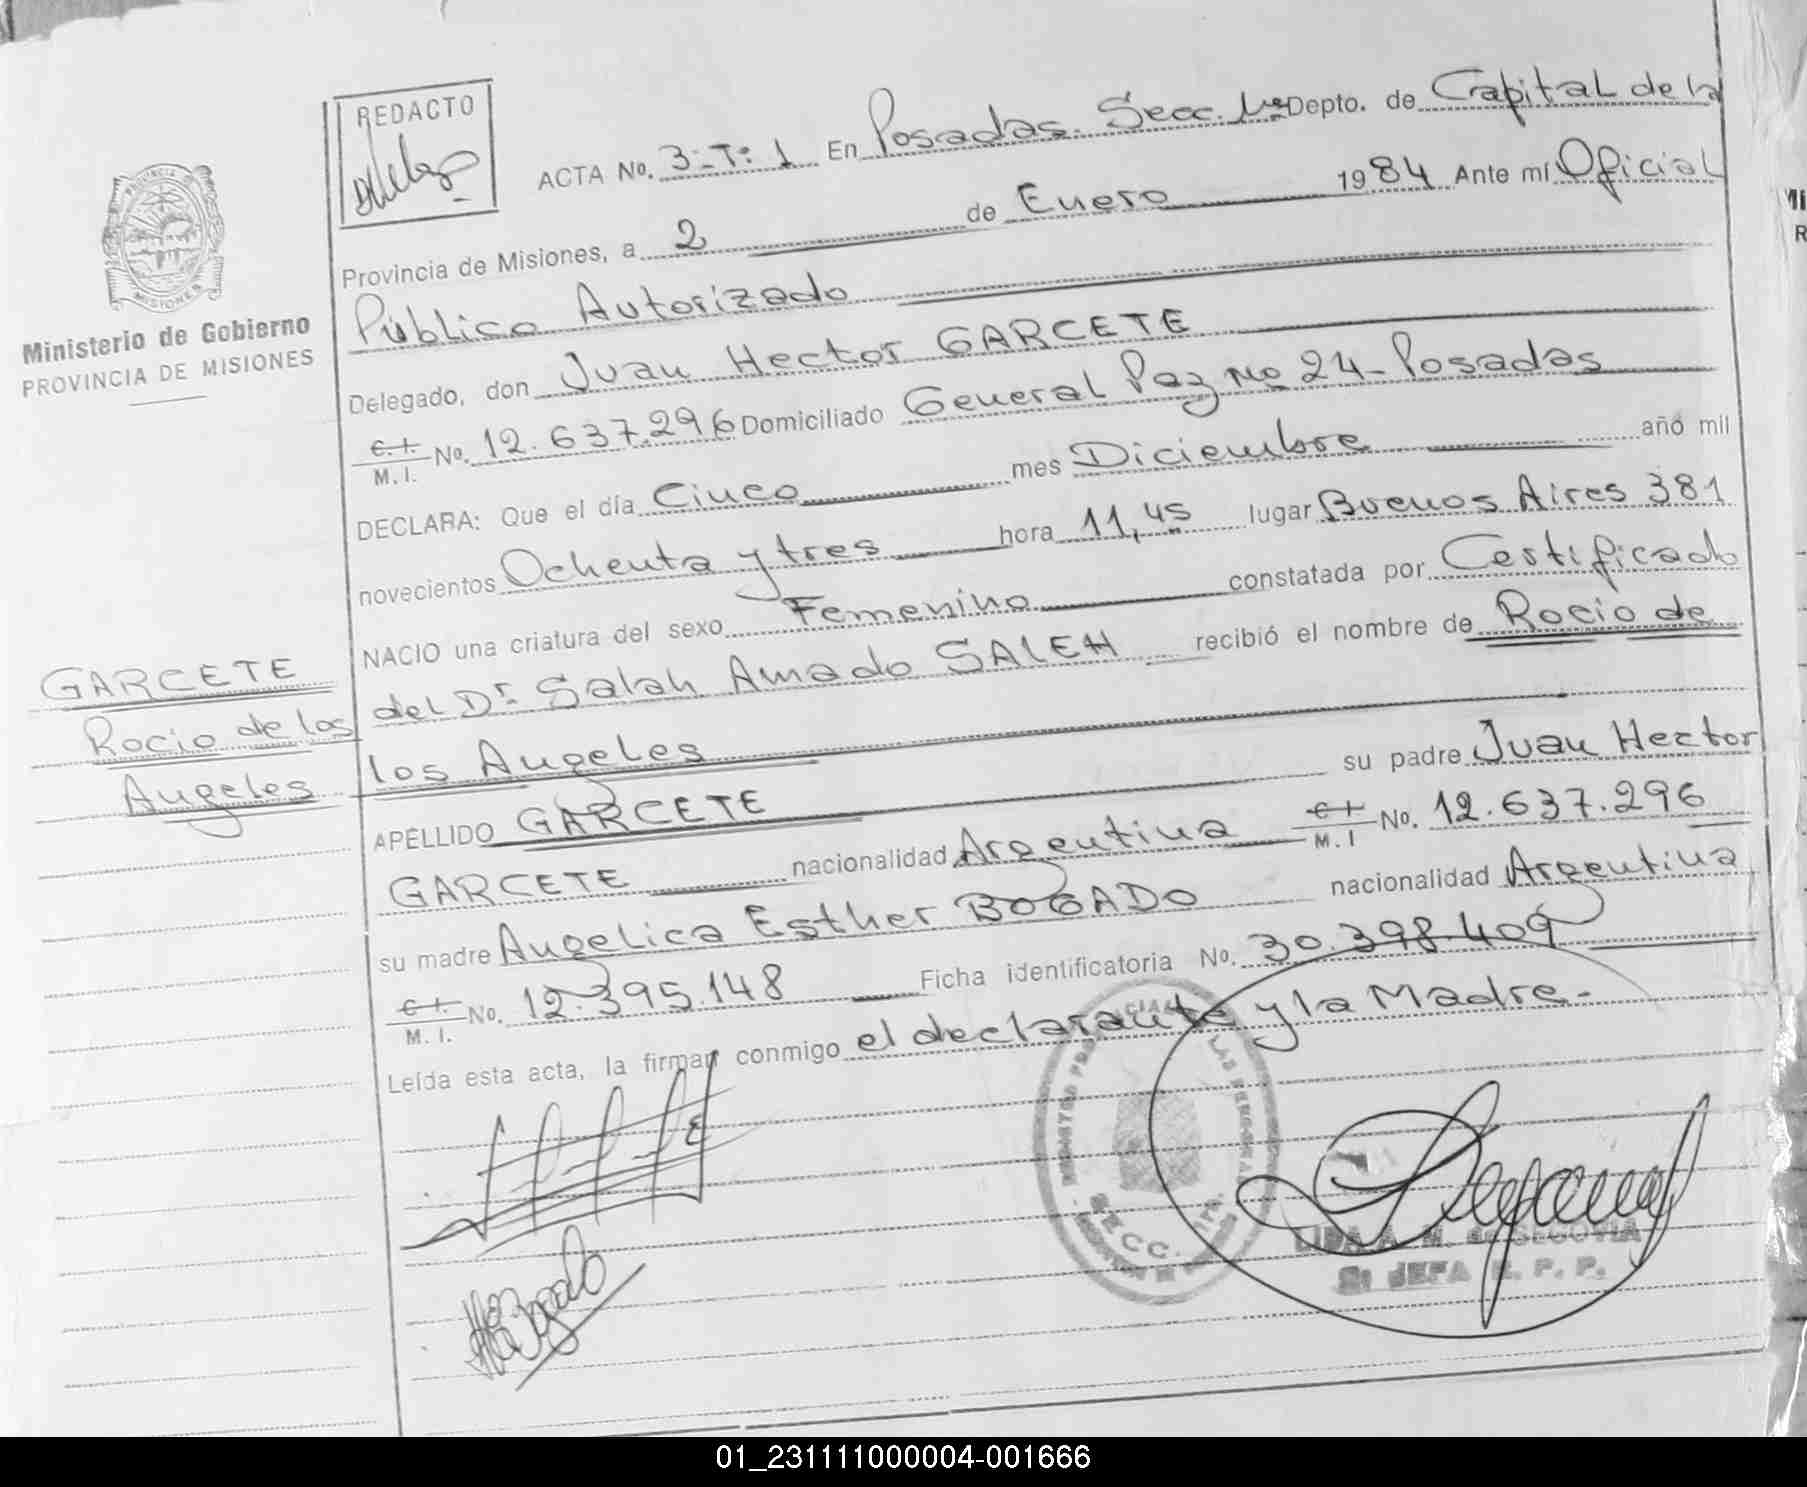 REDACTO
ACTA No. 3-T: 1 En Posadas. Secc. 1ª Depto. de Capital de la
Provincia de Misiones, a 2 de Enero 1984 Ante mí Oficial
Público Autorizado
Delegado, don Juan Hector GARCETE
C.I. M.I. No. 12.637.296 Domiciliado General Paz No 24-Posadas
DECLARA: Que el día Cinco mes Diciembre año mil
novecientos Ochenta y tres hora 11,45 lugar Buenos Aires 381
NACIO una criatura del sexo Femenino constatada por Certificado
del Dr. Salah Amado SALEH recibió el nombre de Rocio de
los Angeles
APELLIDO GARCETE su padre Juan Hector
GARCETE nacionalidad Argentina C.I. M.I No. 12.637.296
su madre Angelica Esther BOGADO nacionalidad Argentina
C.I. M.I. No. 12.395.148 Ficha identificatoria No. 30.398.409
Leída esta acta, la firman conmigo el declarante y la Madre.-
PROVINCIA D
MISIONES
Ministerio de Gobierno
PROVINCIA DE MISIONES
GARCETE
Rocio de los
Angeles
A. M. de SEGOVIA
JEFA R. P. P.
01_231111000004-001666